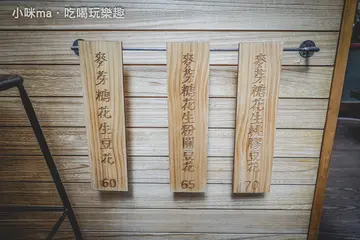 小咪ma・吃喝玩樂趣
麥芽糖花生豆花
60
麥芽糖花生粉圓豆花
65
麥芽糖花生豆花
70